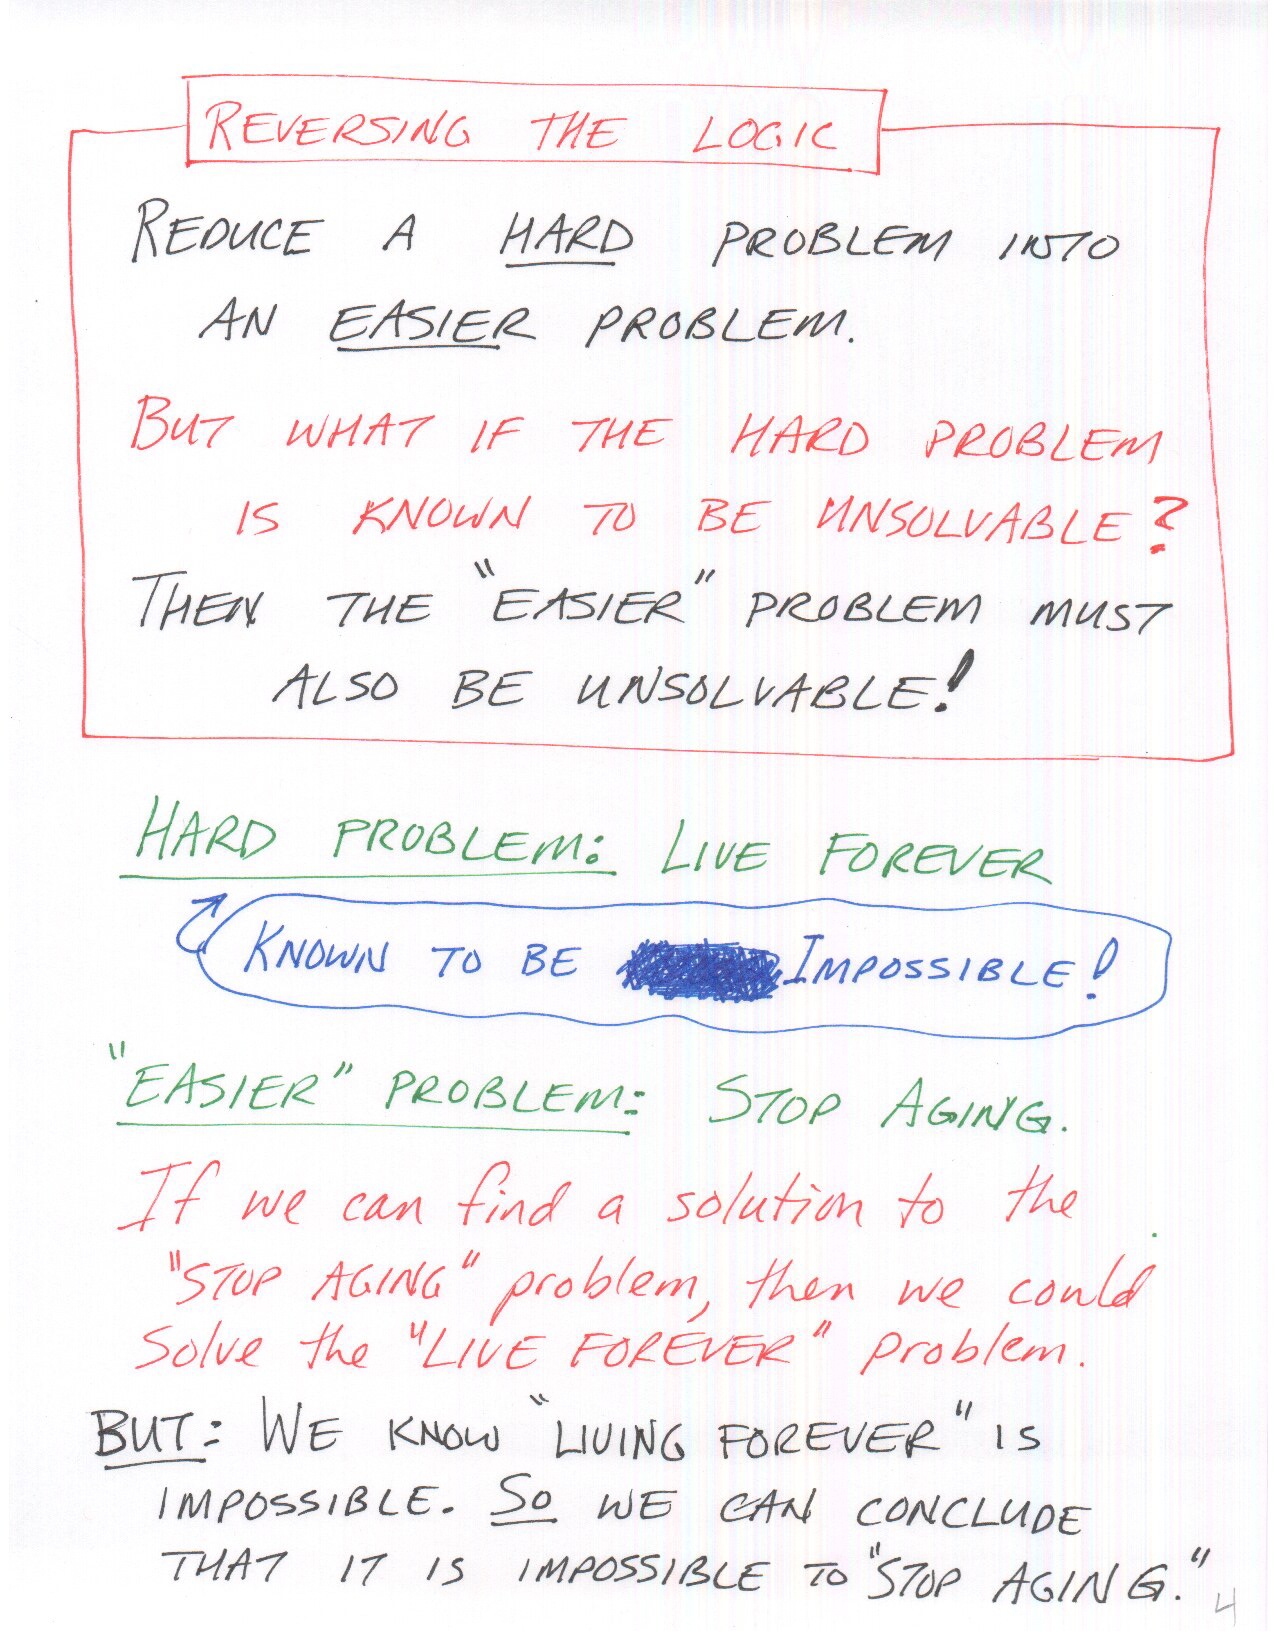 REVERSING THE LOGIC
REDUCE A HARD PROBLEM INTO
AN EASIER PROBLEM.
BUT WHAT IF THE HARD PROBLEM
IS KNOWN TO BE UNSOLVABLE?
THEN THE "EASIER" PROBLEM MUST
ALSO BE UNSOLVABLE!
HARD PROBLEM: LIVE FOREVER
KNOWN TO BE IMPOSSIBLE!
"EASIER" PROBLEM: STOP AGING.
If we can find a solution to the
"STOP AGING" problem, then we could
solve the "LIVE FOREVER" problem.
BUT: WE KNOW "LIVING FOREVER" IS
IMPOSSIBLE. SO WE CAN CONCLUDE
THAT IT IS IMPOSSIBLE TO "STOP AGING."
4